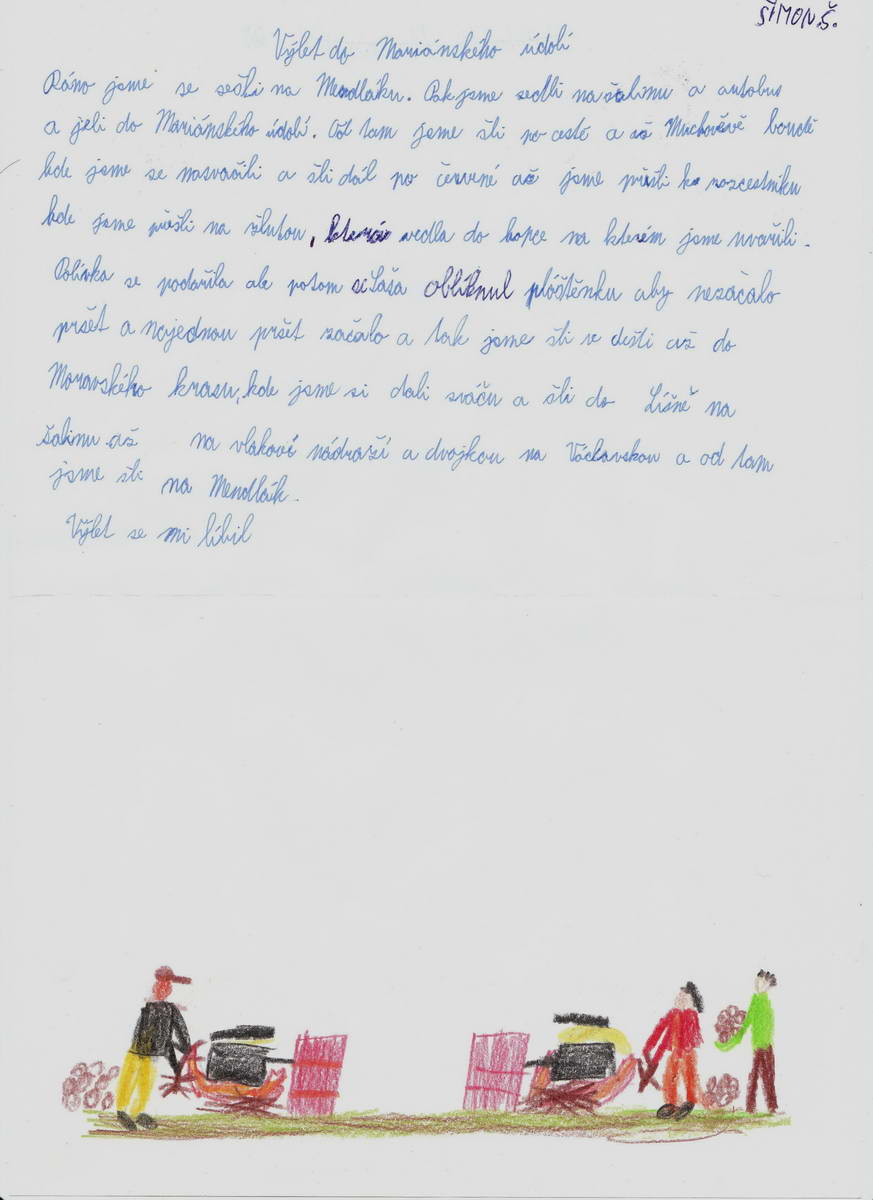 ŠIMON.Š.
Výlet do Mariánského údolí
Ráno jsme se sešli na Mendláku. Pak jsme sedli na šalinu a autobus
a jeli do Mariánského údolí. Od tam jsme šli po cestě a až Muchověvě boudě
kde jsme se nasvačili a šli dál po červené až jsme přišli k rozcestníku
kde jsme přešli na žlutou, která vedla do kopce na kterém jsme uvařili.
Polívka se podařila ale potom si Sáša oblíknul pláštěnku aby nezačalo
pršet a najednou pršet začalo a tak jsme šli v dešti až do
Moravského krasu, kde jsme si dali sváču a šli do Líšně na
šalinu až na vlakové nádraží a dvojkou na Václavskou a od tam
jsme šli na Mendlák.
Výlet se mi líbil